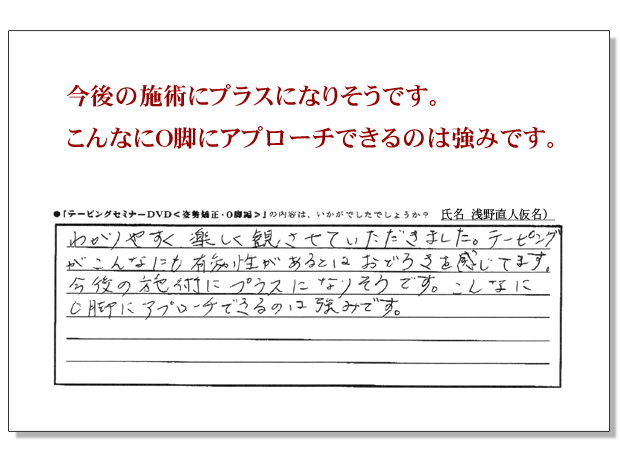 今後の施術にプラスになりそうです。
こんなにO脚にアプローチできるのは強みです。
●『テーピングセミナーDVD＜姿勢矯正・O脚編＞』の内容は、いかがでしたでしょうか？ 氏名 浅野直人仮名）
わかりやすく 楽しく観させていただきました。テーピング
がこんなにも有効性があるとは おどろきを感じてます。
今後の施術に プラスに なりそうです。こんなに
O脚に アプローチできるのは 強みです。